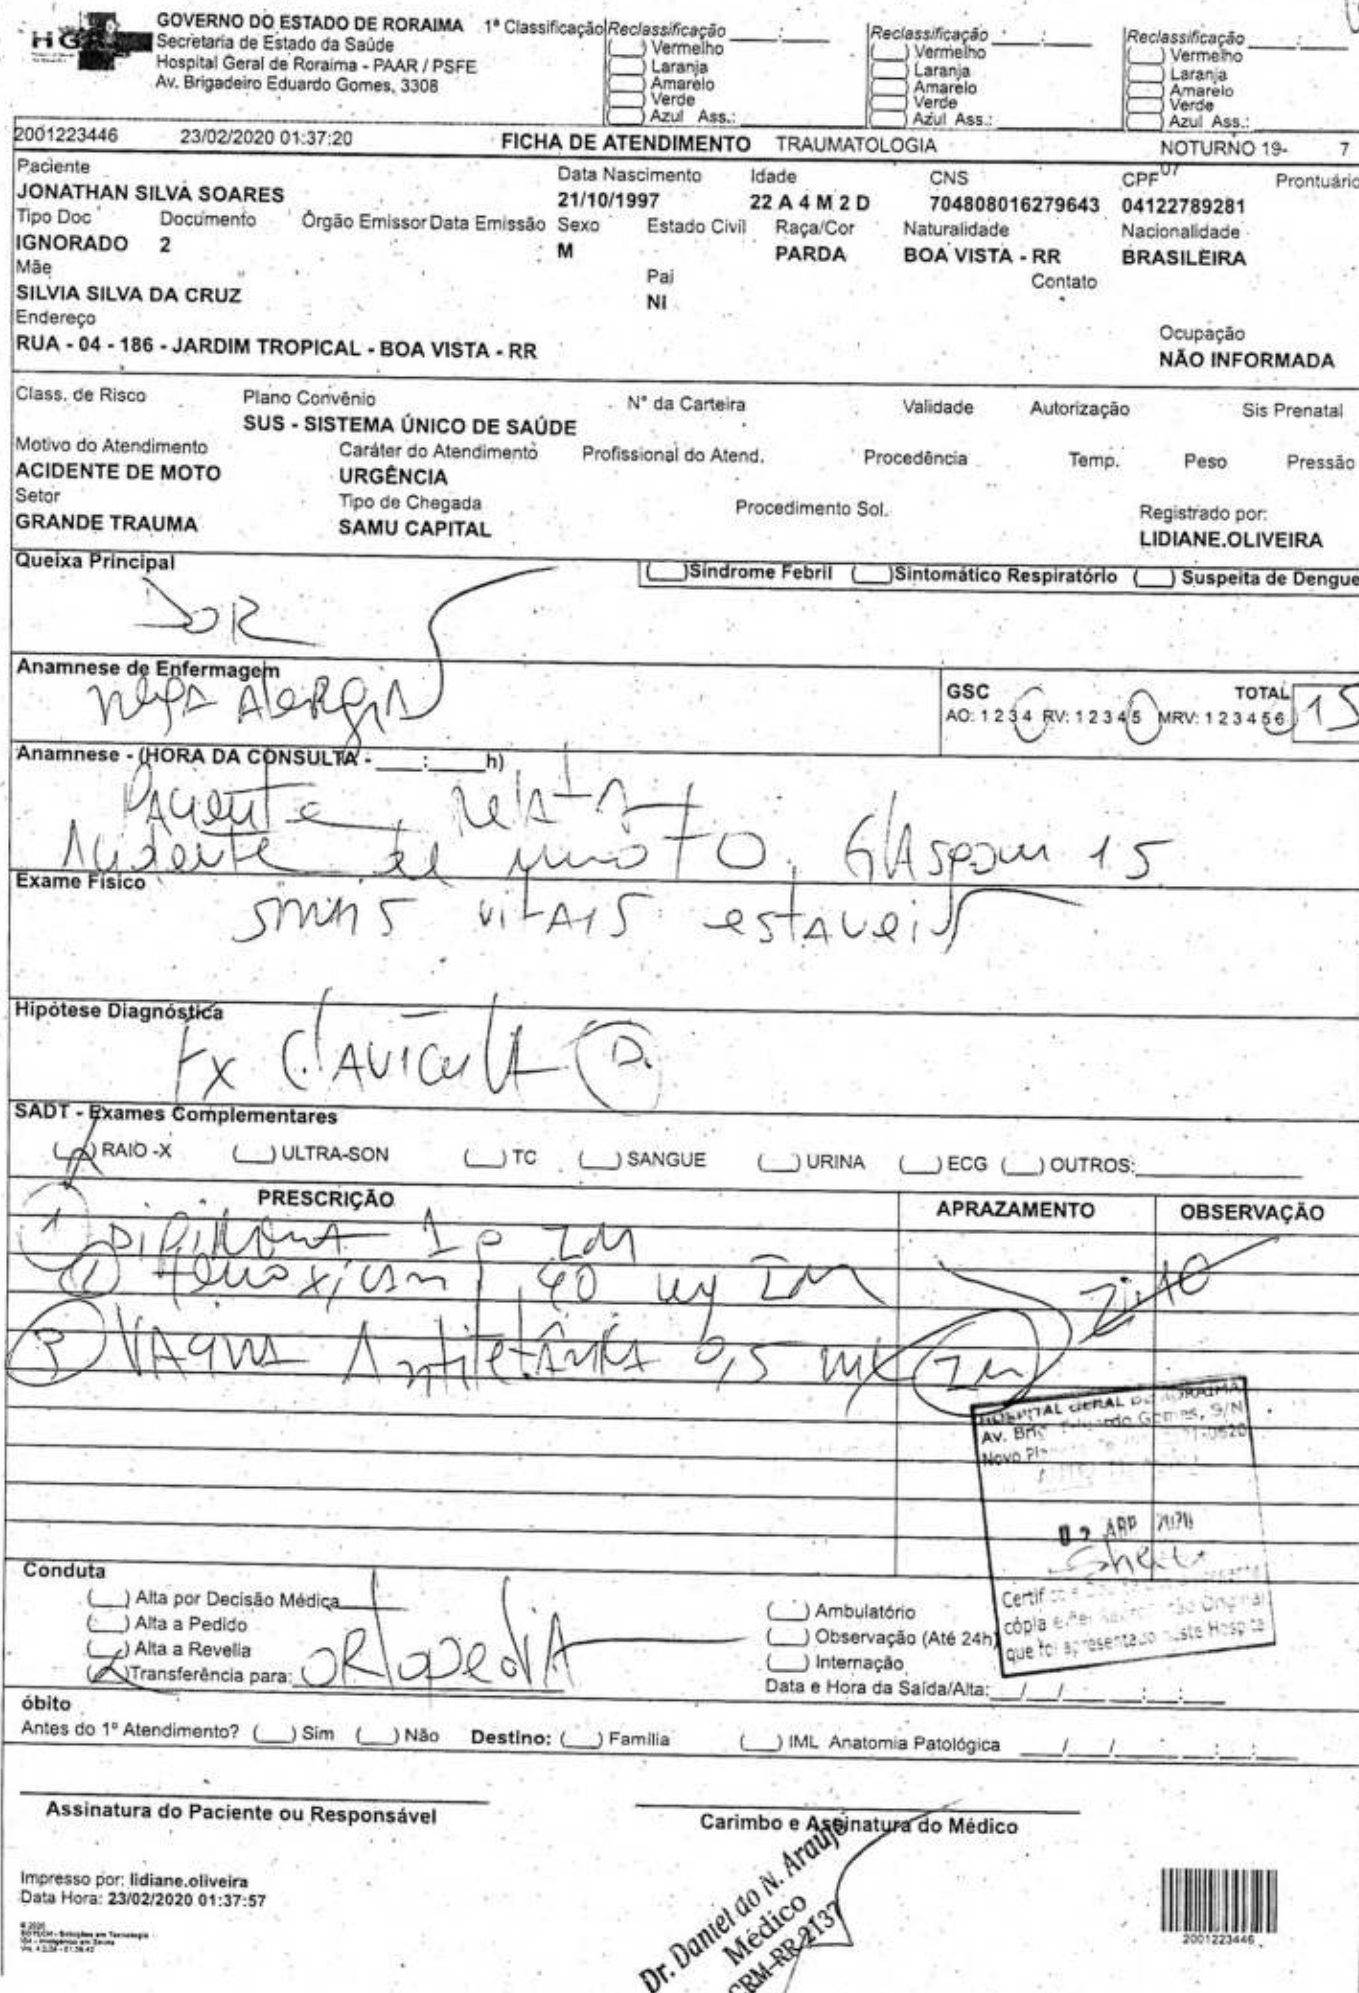 GOVERNO DO ESTADO DE RORAIMA
Secretaria de Estado da Saúde
Hospital Geral de Roraima - PAAR / PSFE
Av. Brigadeiro Eduardo Gomes, 3308
1ª Classificação Reclassificação ___:___
(__) Vermelho
(__) Laranja
(__) Amarelo
(__) Verde
(__) Azul Ass.:
Reclassificação ___:___
(__) Vermelho
(__) Laranja
(__) Amarelo
(__) Verde
(__) Azul Ass.:
Reclassificação ___:___
(__) Vermelho
(__) Laranja
(__) Amarelo
(__) Verde
(__) Azul Ass.:
2001223446 23/02/2020 01:37:20 FICHA DE ATENDIMENTO TRAUMATOLOGIA NOTURNO 19- 7
07
Paciente Data Nascimento Idade CNS CPF Prontuário
JONATHAN SILVA SOARES 21/10/1997 22 A 4 M 2 D 704808016279643 04122789281
Tipo Doc Documento Órgão Emissor Data Emissão Sexo Estado Civil Raça/Cor Naturalidade Nacionalidade
IGNORADO 2 M PARDA BOA VISTA - RR BRASILEIRA
Mãe Pai Contato
SILVIA SILVA DA CRUZ NI
Endereço Ocupação
RUA - 04 - 186 - JARDIM TROPICAL - BOA VISTA - RR NÃO INFORMADA
Class. de Risco Plano Convênio N° da Carteira Validade Autorização Sis Prenatal
SUS - SISTEMA ÚNICO DE SAÚDE
Motivo do Atendimento Caráter do Atendimento Profissional do Atend. Procedência Temp. Peso Pressão
ACIDENTE DE MOTO URGÊNCIA
Setor Tipo de Chegada Procedimento Sol. Registrado por:
GRANDE TRAUMA SAMU CAPITAL LIDIANE.OLIVEIRA
Queixa Principal (__) Síndrome Febril (__) Sintomático Respiratório (__) Suspeita de Dengue
DOR
Anamnese de Enfermagem
nega Alergia
GSC TOTAL
AO: 1 2 3 4 RV: 1 2 3 4 5 MRV: 1 2 3 4 5 6 15
Anamnese - (HORA DA CONSULTA - ___:___h)
Paciente relata
Acidente de moto, Glasgow 15
Exame Físico
sinais vitais estaveis
Hipótese Diagnóstica
Fx Clavicula D.
SADT - Exames Complementares
(X) RAIO -X (__) ULTRA-SON (__) TC (__) SANGUE (__) URINA (__) ECG (__) OUTROS:
PRESCRIÇÃO APRAZAMENTO OBSERVAÇÃO
1 Dipirona 1 IM
2 tenoxicam 40 mg IM
3 Vacina Antitetânica 0,5 ml IM
HOSPITAL GERAL DE RORAIMA
Av. Brig. Eduardo Gomes, S/N
02 ABR 2020
Certifico e Dou
cópia é fiel
que foi apresentado neste Hospital
Conduta
(__) Alta por Decisão Médica
(__) Alta a Pedido
(__) Alta a Revelia
(X) Transferência para: ortopedia
(__) Ambulatório
(__) Observação (Até 24h)
(__) Internação
Data e Hora da Saída/Alta: __/__/__ __:__:__
óbito
Antes do 1º Atendimento? (__) Sim (__) Não Destino: (__) Família (__) IML Anatomia Patológica __/__/__ __:__:__
Assinatura do Paciente ou Responsável Carimbo e Assinatura do Médico
Dr. Daniel do N. Araujo
Médico
CRM-RR 2137
Impresso por: lidiane.oliveira
Data Hora: 23/02/2020 01:37:57
2001223446